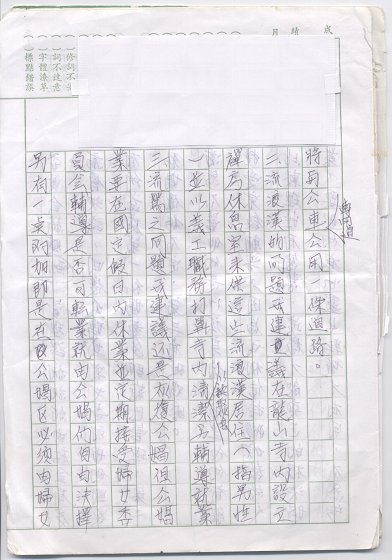 成績
月
修詞不
詞不達意
字體潦草
標點錯誤
將與公車公用一條道路。
流浪漢的問題可建議在龍山寺內設立
禪房休息室來供這些流浪漢居住(指男性
)並以義工職務打掃寺內清潔及輔導就業
三、流鶯之問題我建議還是恢復公娼但公娼
業要在國定假日內休業也定期接受婦女委
員會輔導是否可轉業就由公娼他們自由決擇
另有一點附加即是在公娼区必須由婦女